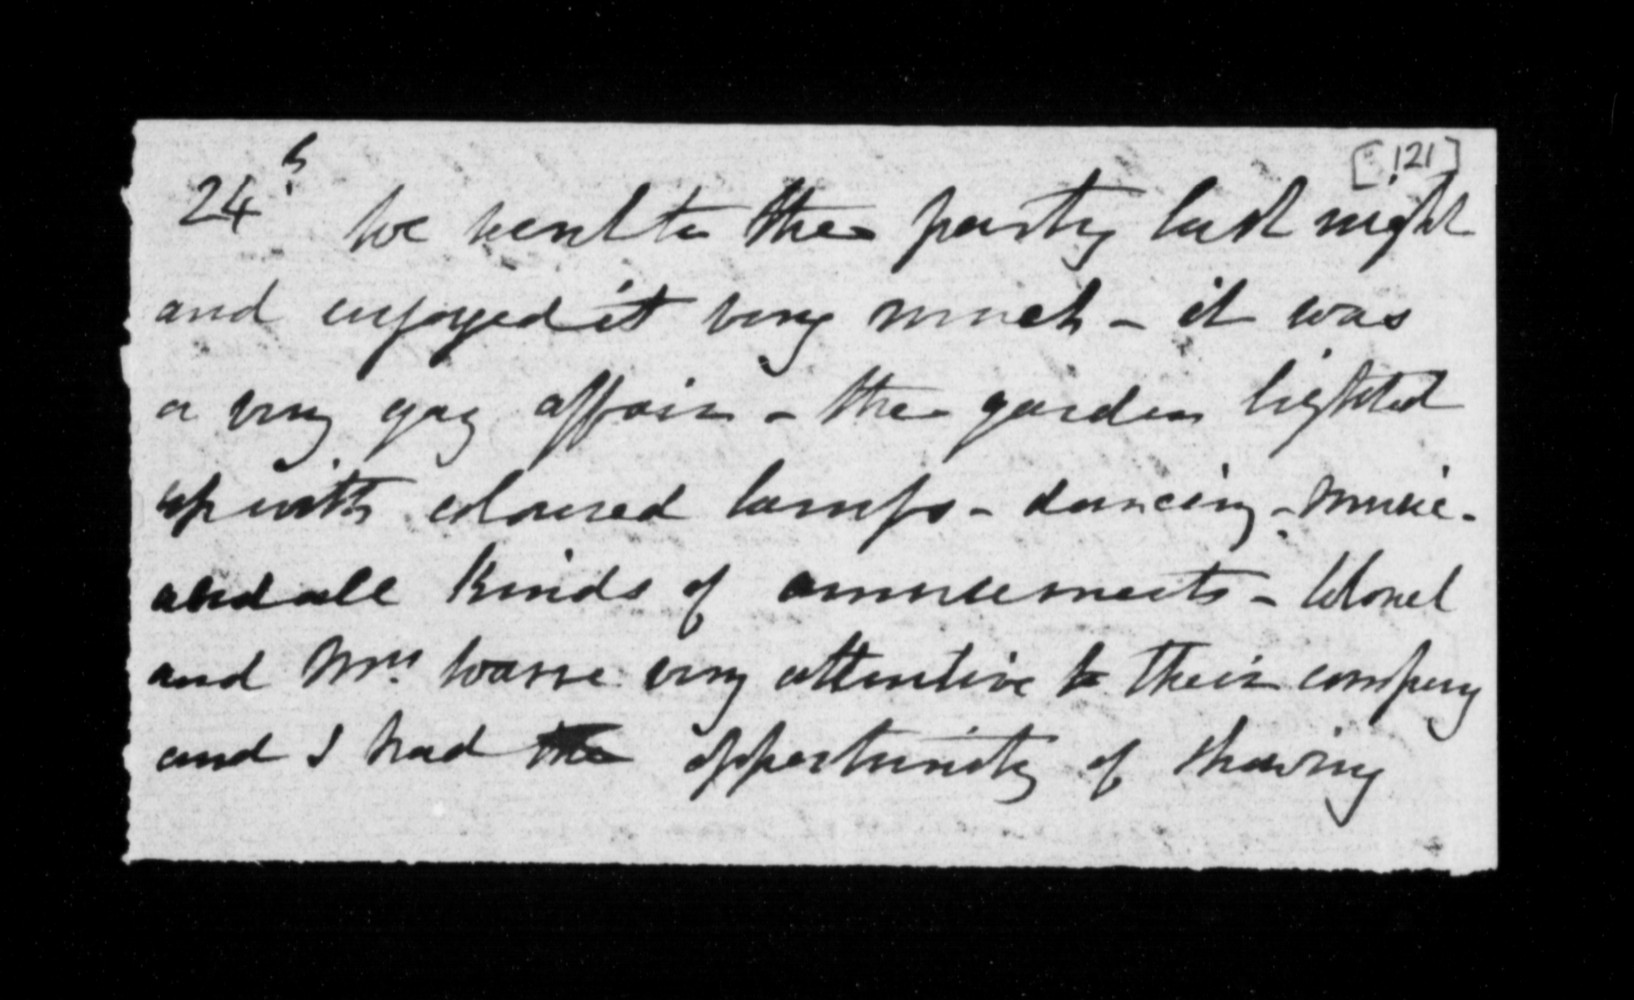 [121]
24th We went to the party last night
and enjoyed it very much - it was
a very gay affair - the garden lighted
up with coloured lamps - dancing - music -
and all kinds of amusements - Colonel
and Mrs. very attentive to their company
and I had the opportunity of shewing